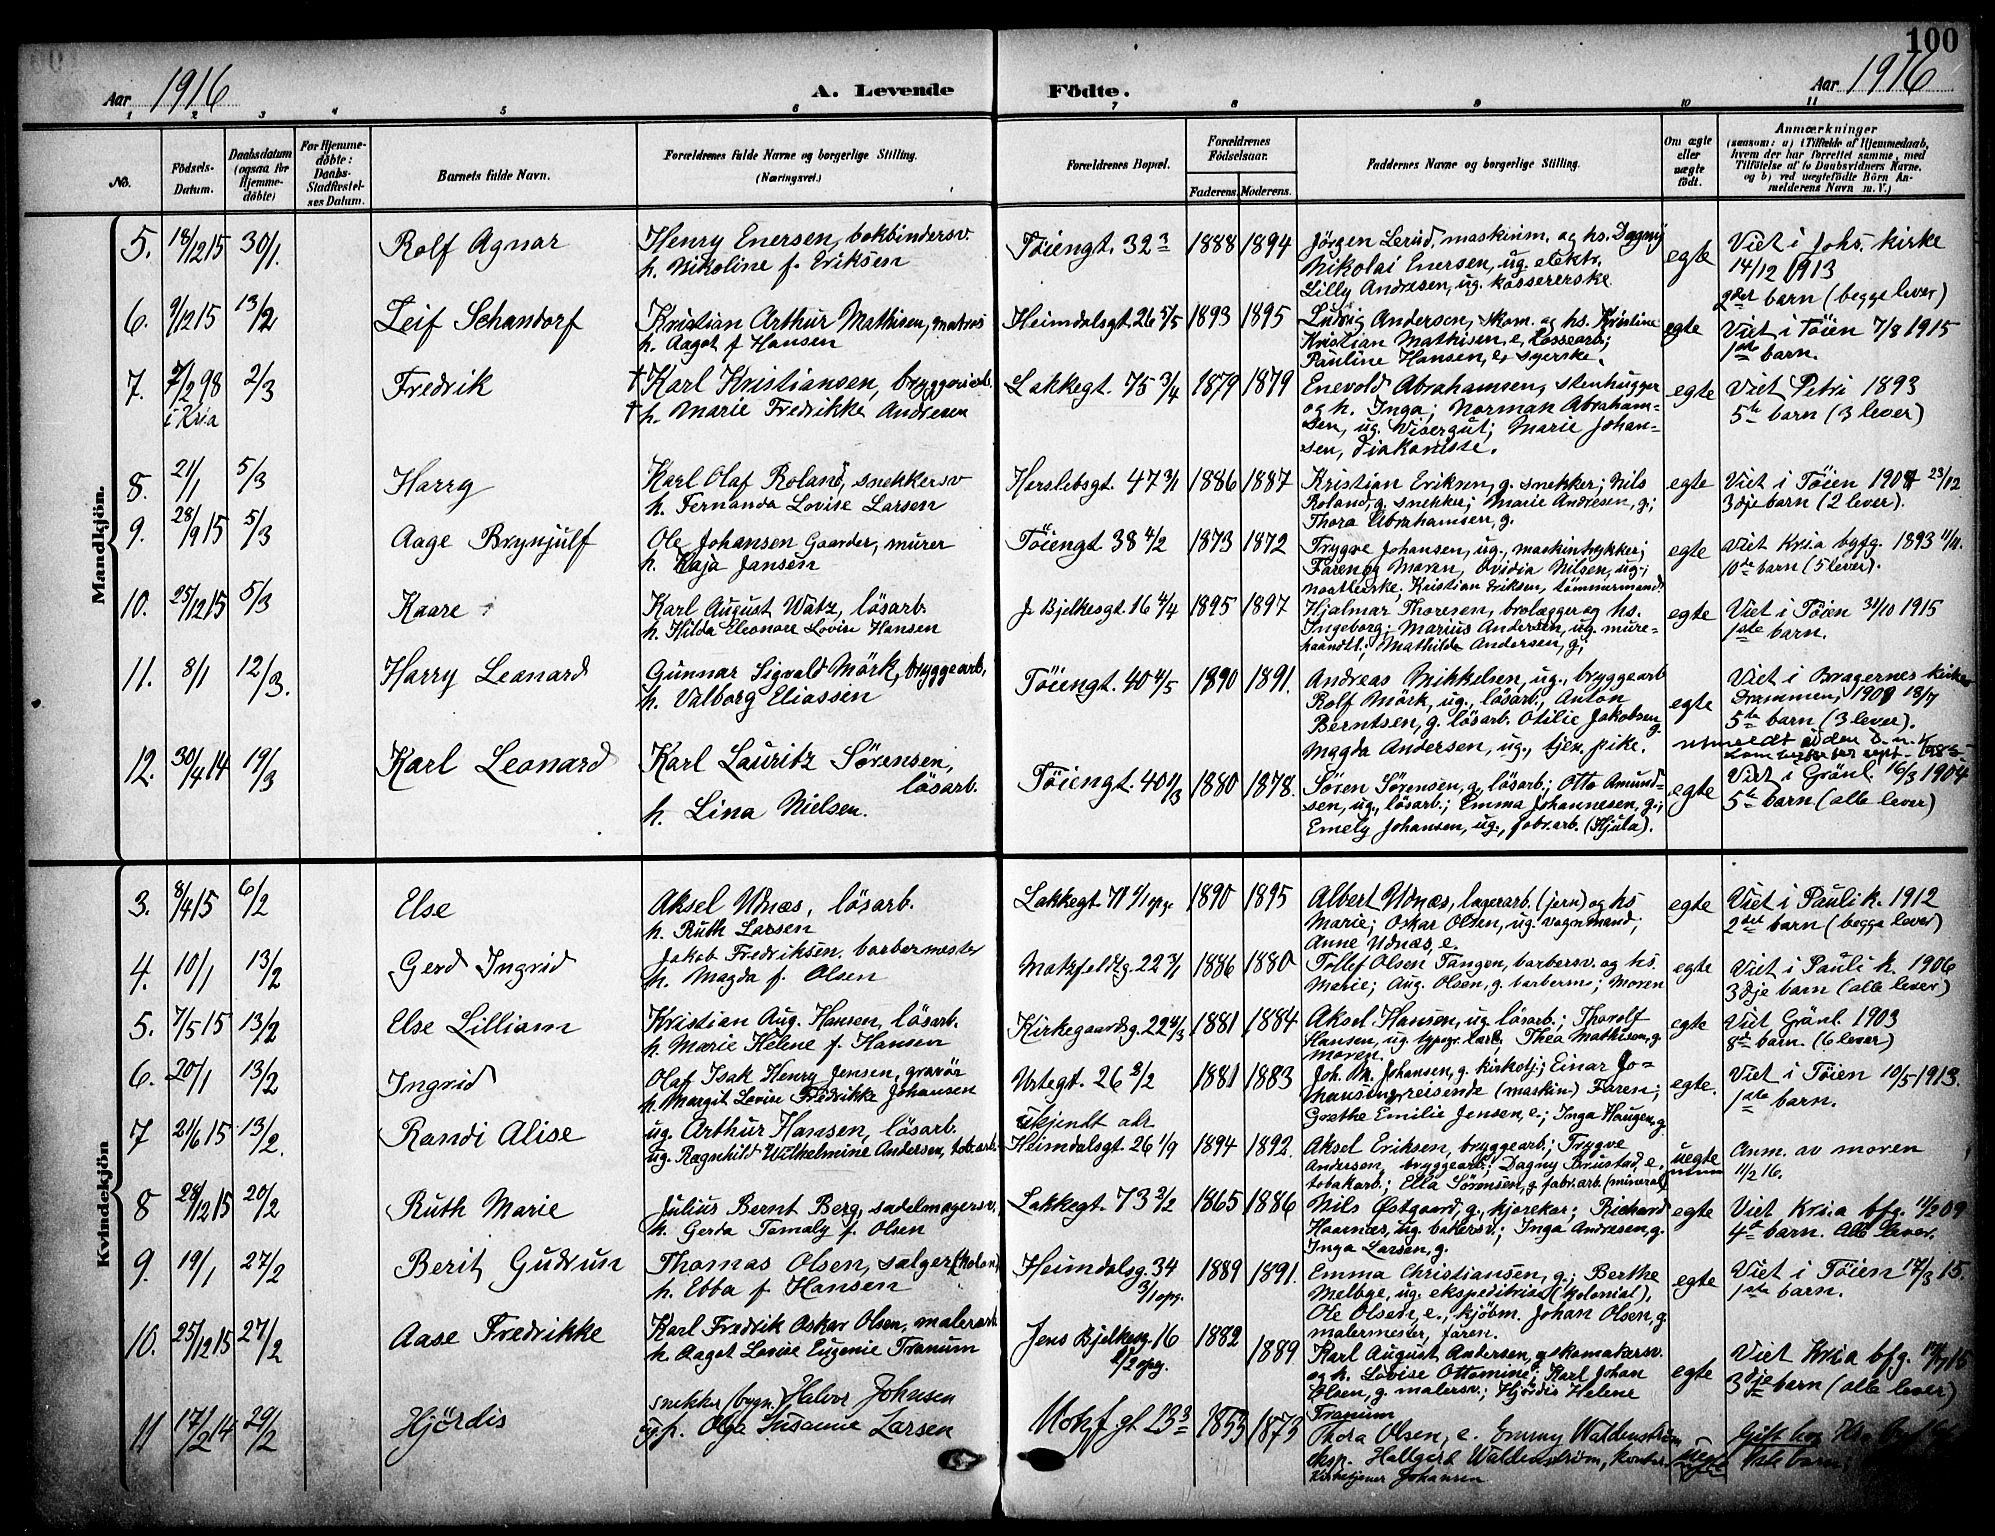 100
Aar 1916
A. Levende Födte.
Aar 1916
1 2 3 4 5 6 7 8 9 10 11
No.
Födsels-Datum.
Daabsdatum (ogsaa for Hjemmedöbte)
For Hjemmedöbte: Daabs-Stadfæstelses Datum.
Barnets fulde Navn.
Forældrenes fulde Navne og borgerlige Stilling.
(Næringsvei.)
Forældrenes Bopæl.
Forældrenes Födselsaar.
Faderens. Moderens.
Faddernes Navne og borgerlige Stilling.
Om ægte eller uægte födt.
Anmærkninger
(saasom: a) i Tilfælde af Hjemmedaab, hvem der har forrettet samme, med Tilföielse af to Daabsvidners Navne, og b) ved uægtefödte Börn Anmelderens Navn m. V.)
Mandkjön.
5. 18/12 15 30/1. Rolf Agnar
Henry Enersen, bokbindersv.
h. Nikoline f. Eriksen
Töiengt. 32 3 1888 1894
Jörgen Lerud, maskinm. og hs. Dagny
Nikolai Enersen, ug. elektr.
Lilly Andresen, ug. kassererske
egte
Viet i Johs. kirke
14/12 1913
2det barn (begge lever)
6. 9/12 15 13/2 Leif Schandorf
Kristian Arthur Mathisen, matros
h. Aagot f Hansen
Heimdalsgt. 26 5/5 1893 1895
Ludvig Andersen, skom. og hs. Kristine
Kristian Mathisen, e, Lossearb.;
Pauline Hansen, e, syerske.
egte
Viet i Töien 7/8 1915
1ste barn.
7. 7/2 98 2/3 Fredrik
i Kria
† Karl Kristiansen, bryggeriarb.
† h. Marie Fredrikke Andresen
Lakkegt. 75 3/4 1879 1879
Enevold Abrahamsen, stenhugger
og h. Inga; Norman Abraham-
sen, ug. Visergut; Marie Johan-
sen, Diakonisse.
egte
Viet Petri 1893
5te barn (3 lever)
8. 21/1 5/3 Harry
Karl Olaf Roland, snekkersv
h. Fernanda Lovise Larsen
Herslebsgt. 47 3/1 1886 1887
Kristian Eriksen, g. snekker; Nils
Roland, g. snekker; Marie Andresen, g.;
Thora Abrahamsen, g.
egte
Viet i Töien 1907 23/12
3dje barn (2 lever).
9. 28/9 15 5/3 Aage Brynjulf
Ole Johansen Gaarder, murer
h. Kaja Jansen
Töiengt 38 4/2 1873 1872
Trygve Johansen, ug., maskintrykker;
Faren og Moren, Ovidia Nilsen, ug.;
Kristian Eriksen, tömmermand.
egte
Viet Kria byfg. 1893
10de barn (5 lever).
10. 25/12 15 5/3 Kaare
Karl August Watz, lösarb.
h. Hilda Eleonore Lovise Hansen
J. Bjelkesgt 16 4/4 1895 1897
Hjalmar Thoresen, brolægger og hs.
Ingeborg; Marius Andersen, ug. mure-
haandl.; Mathilde Andersen, g;
egte
Viet i Töien 31/10 1915
1ste barn.
11. 8/1 12/3. Harry Leonard
Gunnar Sigvald Mörk, bryggearb.
h. Valborg Eliassen
Töiengt. 40 4/5 1890 1891.
Andreas Mikkelsen, ug., bryggearb
Rolf Mörk, ug., lösarb., Anton
Berntsen, g. lösarb. Otilie Jakobsen g.
Magda Andersen, ug., tjen. pike.
egte
Viet i Bragernes kirke
Drammen, 18/7
5te barn (3 lever).
12. 30/4 14 19/3 Karl Leonard
Karl Lauritz Sörensen,
lösarb.
h. Lina Nielsen.
Töiengt. 40 1880 1878.
Sören Sörensen, g, lösarb.; Otto Amund-
sen, ug., lösarb.; Emma Johannesen, g.;
Emely Johansen, ug., fabr.arb. (Hjula).
egte
utmeldt
Viet i Grönl. 16/3 1904
5te barn (alle lever)
Kvindekjön
3. 8/4 15 6/2 Else
Aksel Udnæs, lösarb.
h. Ruth Larsen
Lakkegt 71 1/1 opg. 1890 1895
Albert Udnæs, lagerarb. (jern) og hs
Marie; Oskar Olsen, ug. vognmand;
Anne Udnæs, e.
egte
Viet i Pauli k. 1912
2det barn (begge lever)
4. 10/1 13/2 Gerd Ingrid
Jakob Fredriksen, barbermester
h. Magda f. Olsen
Motzfeldtsg. 22 3/1 1886 1880
Tollef Olsen Tangen, barbersv. og hs.
Marie; Aug. Olsen, g. barberm; Moren
egte
Viet i Pauli k. 1906
3dje barn (alle lever)
5. 7/5 15 13/2 Else Lilliam
Kristian Aug. Hansen, lösarb.
h. Marie Helene f. Hansen
Kirkegaardsg. 22 4/3 1881 1884
Aksel Hansen, ug lösarb.; Thorolf
Hansen, ug. typogr. lærl. Thea Mathisen, g.
moren.
egte
Viet Grönl. 1903
8de barn. (6 lever)
6. 20/1 13/2 Ingrid
Olaf Isak Henry Jensen, gravör
h. Margit Lovise Fredrikke Johansen
Urtegt. 26 3/2 1881 1883
Joh. M. Johansen, g. kirketj.; Einar Jo-
hansen, g. reisende (maskin) Faren;
Grethe Emilie Jensen, e.; Inga Haugen, g.
egte.
Viet i Töien 10/5 1913.
1ste barn.
7 21/6 15 13/2. Randi Alise
ug. Arthur Hansen, lösarb.
ug. Ragnhild Wilhelmine Andersen, tob.arb.
ukjendt adr
Heimdalsgt 26 1/9 1894 1892.
Aksel Eriksen, bryggearb; Trygve
Andersen, bryggearb; Dagny Brustad, e.
tobakarb.; Ella Sörensen, g. fabr.arb. (mineral)
uegte
Anm. av moren
11/2 16.
8 28/12 15 20/2 Ruth Marie
Julius Bernt Berg, sadelmagersv.
h. Gerda Tomaly f. Olsen
Lakkegt. 73 3/2 1865 1886
Nils Østgaard, g., kjörekar; Richard
Haarnæs, ug. bakersv; Inga Andresen, g.
Inga Larsen, g.
egte
Viet Kria bfg. 11/2 09
4de barn. Alle lever.
9. 19/1 27/2 Berit Gudrun
Thomas Olsen, sælger (kolon)
h. Ebba f. Hansen
Heimdalsg. 34
3/1 opg. 1889 1891.
Emma Christiansen, g.; Berthe
Melbge, ug. ekspeditrise (kolonial),
Ole Olsen, e., kjöbm. Johan Olsen, g.
malermester, faren.
egte
Viet i Töien 17/3 15.
1ste barn.
10. 25/12 15 27/2 Aase Fredrikke
Karl Fredrik Oskar Olsen, malerarb
h. Aagot Lovise Eugenie Tranum
Jens Bjelkesg. 16
2/2 opg. 1882 1889
Karl August Andersen, g. skomakersv.
og h. Lovise Ottomine; Karl Johan
Olsen, g. malersv.; Hjördis Helene
Tranum
egte
Viet Kria bfg. 15
3dje barn (alle lever)
11 17/2 14 29/2 Hjördis
snekker (bygn.) Halvor Johansen
Olga Susanne Larsen
Motzf. gt 23 3 1853 1873
Thora Olsen, e. Emmy Waldenström
eksp. Hallgerd Waldenström, kontor.
Kirketjener Johansen
uegte
Gift
barn,